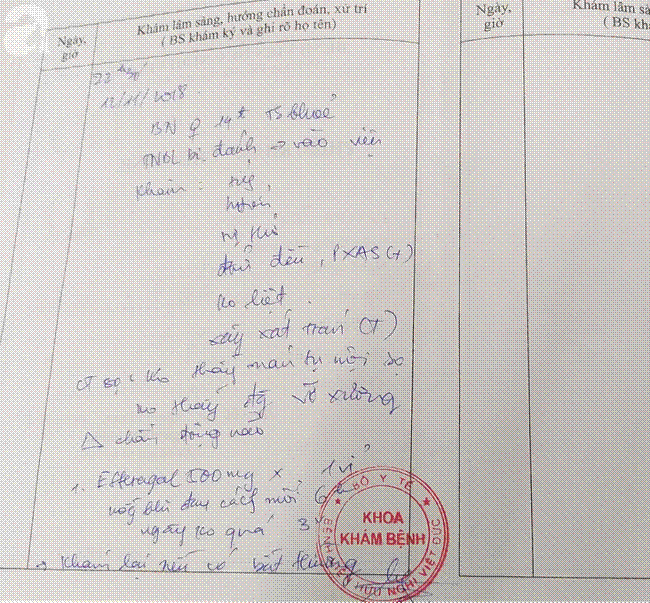 a
Ngày, giờ
Khám lâm sàng, hướng chẩn đoán, xử trí
( BS khám ký và ghi rõ họ tên)
Ngày, giờ
Khám lâm sà
( BS khá
12/11/2018
BN ♀ 14t TS khoẻ
TNBL bị đánh → vào viện
Khám : tỉnh,
đều, PXAS (+)
ko liệt.
xây xát trán (+)
CT sọ : ko thấy máu tụ nội sọ
ko thấy đg vỡ xương
△ chấn động não
1. Efferagal 500mg x 1 vỉ
uống khi đau cách mỗi 6h
ngày ko quá 3v
→ Khám lại nếu có bất thường
BỘ Y TẾ
KHOA
KHÁM BỆNH
BỆNH VIỆN HỮU NGHỊ VIỆT ĐỨC